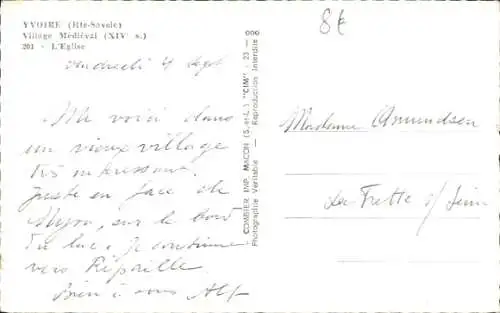 YVOIRE (Hte-Savoie)
Village Médiéval (XIVe s.)
201 - L'Eglise
8€
vendredi 4 Sept
Me voici dans
un vieux village
très impressionnant.
Juste en face de
Nyon, sur le bord
du lac. Je continue
vers Ripaille
Bien à vous Alf
COMBIER IMP. MACON (S.-et-L.) "CIM" - 23 - 000
Photographie Véritable - Reproduction Interdite
Madame Amundsen
La Frette s/ Seine